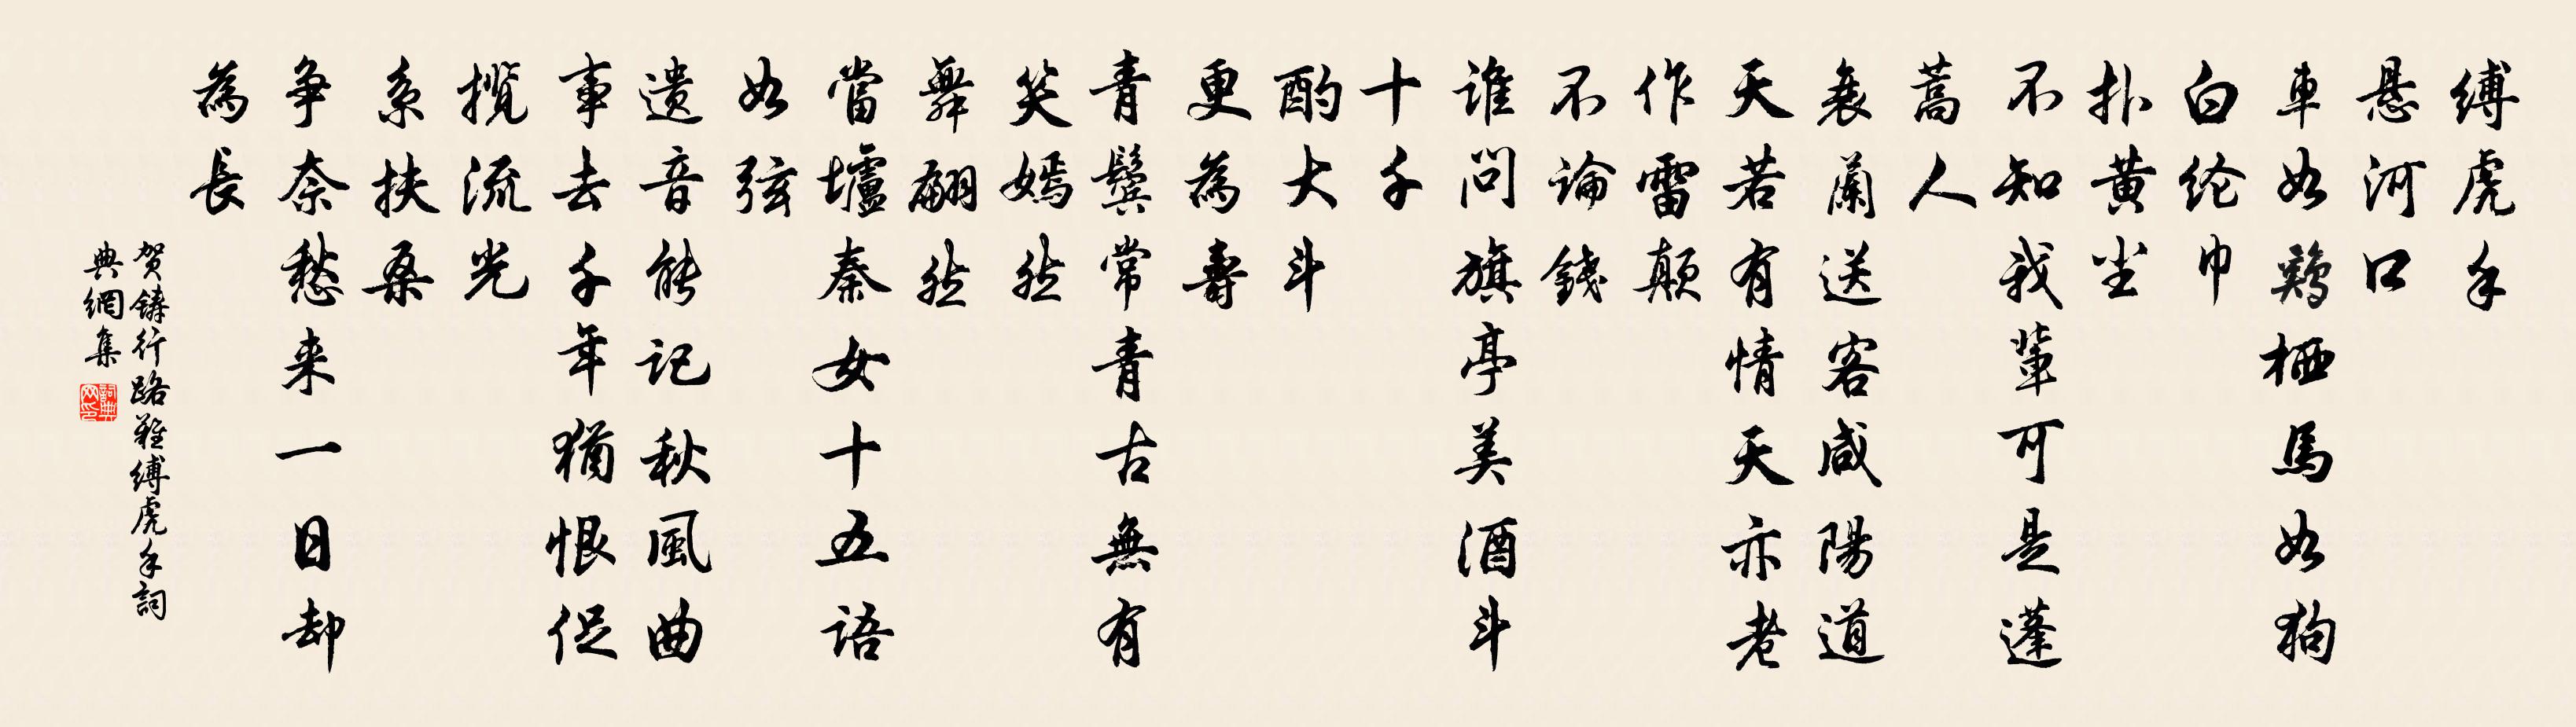 缚虎手
悬河口
車如鷄栖馬如狗
白纶巾
扑黄尘
不知我輩可是蓬
蒿人
衰蘭送客咸陽道
天若有情天亦老
作雷顛
不論錢
谁問旗亭美酒斗
十千
酌大斗
更為壽
青鬓常青古無有
笑嫣然
舞翩然
當壚秦女十五语
如弦
遗音能记秋風曲
事去千年猶恨促
揽流光
系扶桑
争奈愁来一日却
為長
贺鑄行路難缚虎手詞
典網集
詞典网印